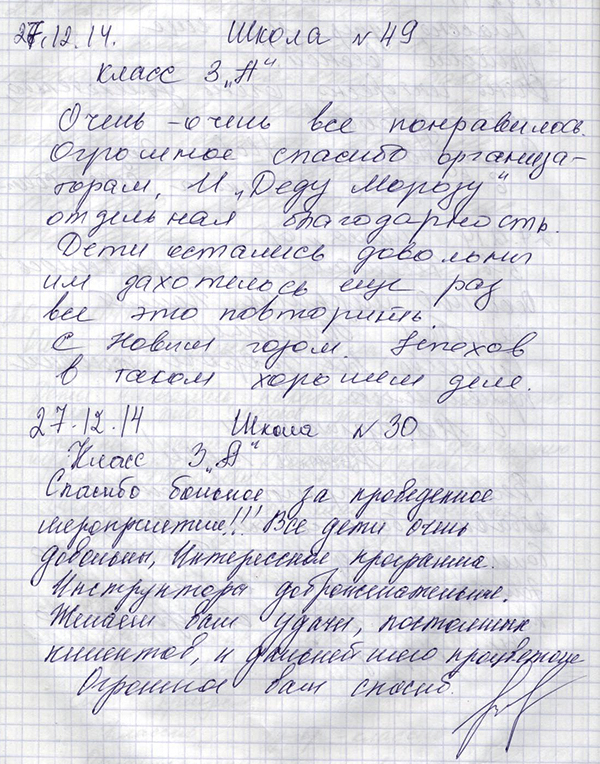 27.12.14. Школа № 49
класс 3 „А“
Очень-очень все понравилось.
Огромное спасибо организа-
торам, И „Деду Морозу“
отдельная благодарность.
Дети остались довольны
им захотелось еще раз
все это повторить.
С Новым годом. Успехов
в таком хорошем деле.
27.12.14 Школа № 30
Класс 3 „А“
Спасибо большое за проведенное
мероприятие!!! Все дети очень
довольны, Интересная программа.
Инструкторы доброжелательные.
Желаем вам удачи, постоянных
клиентов, и дальнейшего процветание
Огромное вам спасиб.